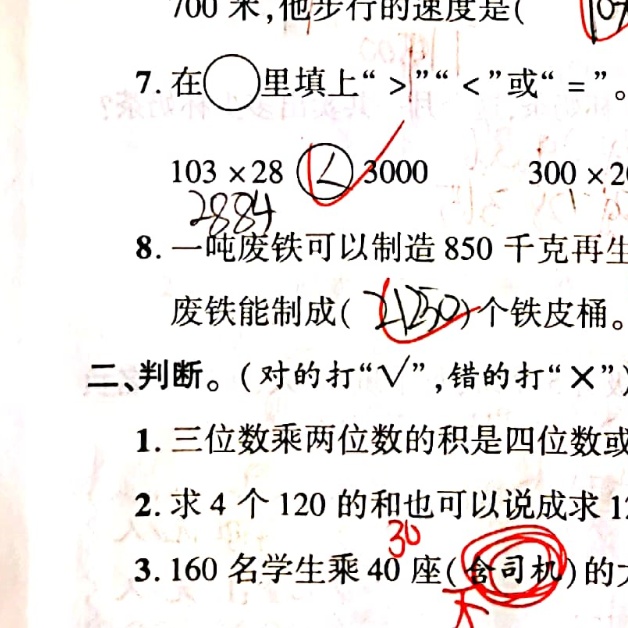 700 米,他步行的速度是(
7. 在○里填上“ > ”“ < ”或“ = ”。
103 × 28 < 3000 300 × 2
2884
8. 一吨废铁可以制造 850 千克再生
废铁能制成( 21250 )个铁皮桶。
二、判断。(对的打“√”,错的打“×”)
1. 三位数乘两位数的积是四位数或
2. 求 4 个 120 的和也可以说成求 1
30
3. 160 名学生乘 40 座(含司机)的
不